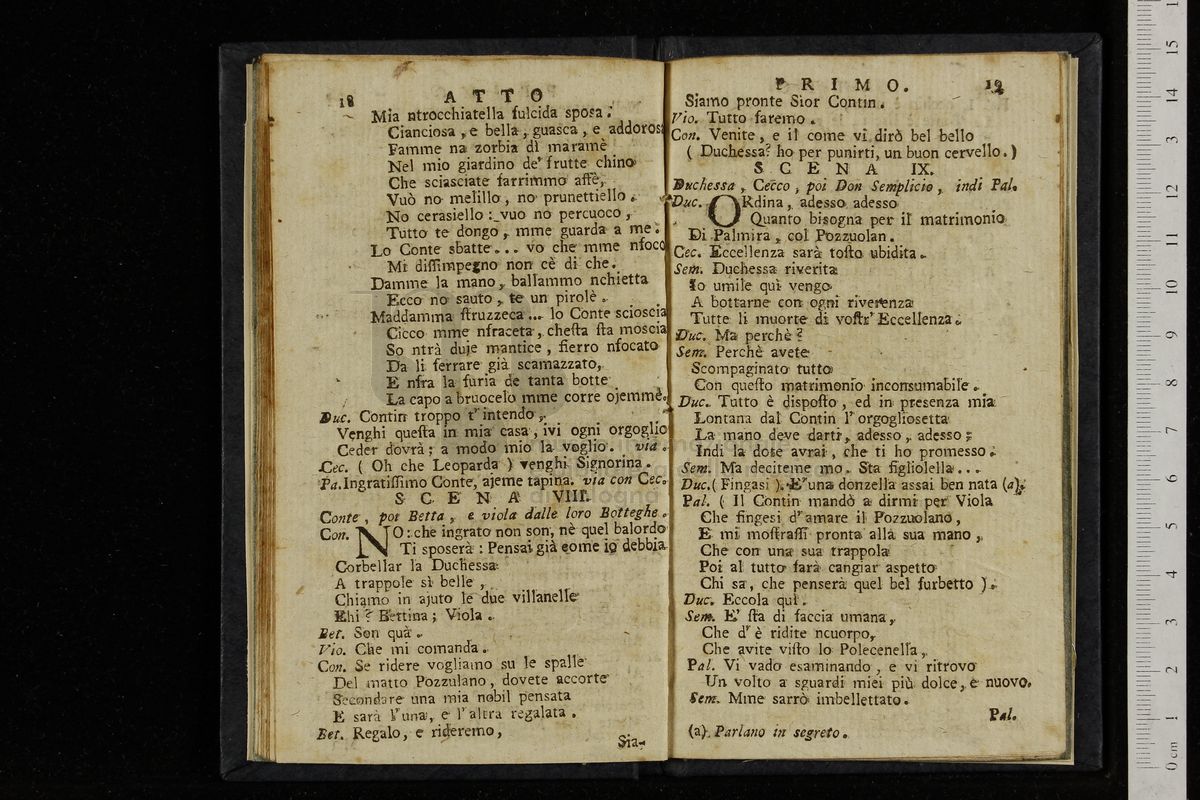 18 ATTO
Mia ntrocchiatella fulcida sposa.
Cianciosa, e bella, guasca, e addorosa
Famme na zorbia dì maramè
Nel mio giardino de' frutte chino
Che sciasciate farrimmo affè,
Vuò no melillo, no prunettiello.
No cerasiello: vuo no percuoco,
Tutto te dongo, mme guarda a me.
Lo Conte sbatte... vo che mme nfoco
Mi dissimpegno non cè di che.
Damme la mano, ballammo nchietta
Ecco no sauto, te un pirolè.
Maddamma struzzeca... lo Conte scioscia
Cicco mme nfraceta, chesta sta moscia
So ntrà duje mantice, fierro nfocato
Da li ferrare già scamazzato,
E nfra la furia de tanta botte
La capo a bruocelo mme corre ojemmè.
Duc. Contin troppo t'intendo,
Venghi questa in mia casa, ivi ogni orgoglio
Ceder dovrà; a modo mio la voglio. via.
Cec. ( Oh che Leoparda ) venghi Signorina.
Pa. Ingratissimo Conte, ajeme tapina. via con Cec.
SCENA VIII.
Conte, poi Betta, e viola dalle loro Botteghe.
Con. NO: che ingrato non son, nè quel balordo
Ti sposerà: Pensai già come io debbia
Corbellar la Duchessa
A trappole sì belle,
Chiamo in ajuto le due villanelle
Ehi? Bettina; Viola.
Bet. Son quà.
Vio. Che mi comanda.
Con. Se ridere vogliamo su le spalle
Del matto Pozzulano, dovete accorte
Secondare una mia nobil pensata
E sarà l'una, e l'altra regalata.
Bet. Regalo, e rideremo,
Sia-
PRIMO. 19
Siamo pronte Sior Contin.
Vio. Tutto faremo.
Con. Venite, e il come vi dirò bel bello
( Duchessa? ho per punirti, un buon cervello. )
SCENA IX.
Duchessa, Cecco, poi Don Semplicio, indi Pal.
Duc. ORdina, adesso adesso
Quanto bisogna per il matrimonio
Di Palmira, col Pozzuolan.
Cec. Eccellenza sarà tosto ubidita.
Sem. Duchessa riverita
Io umile qui vengo
A bottarne con ogni riverenza
Tutte li muorte di vostr' Eccellenza.
Duc. Ma perchè?
Sem. Perchè avete
Scompaginato tutto
Con questo matrimonio inconsumabile.
Duc. Tutto è disposto, ed in presenza mia
Lontana dal Contin l'orgogliosetta
La mano deve darti, adesso, adesso;
Indi la dote avrai, che ti ho promesso.
Sem. Ma deciteme mo. Sta figliolella...
Duc. ( Fingasi ). E' una donzella assai ben nata (a);
Pal. ( Il Contin mandò a dirmi per Viola
Che fingesi d'amare il Pozzuolano,
E mi mostrassi pronta alla sua mano,
Che con una sua trappola
Poi al tutto farà cangiar aspetto
Chi sa, che penserà quel bel furbetto ).
Duc. Eccola qui.
Sem. E' sta di faccia umana,
Che d' è ridite ncuorpo,
Che avite visto lo Polecenella,
Pal. Vi vado esaminando, e vi ritrovo
Un volto a sguardi miei più dolce, e nuovo.
Sem. Mme sarrò imbellettato.
Pal.
(a). Parlano in segreto.